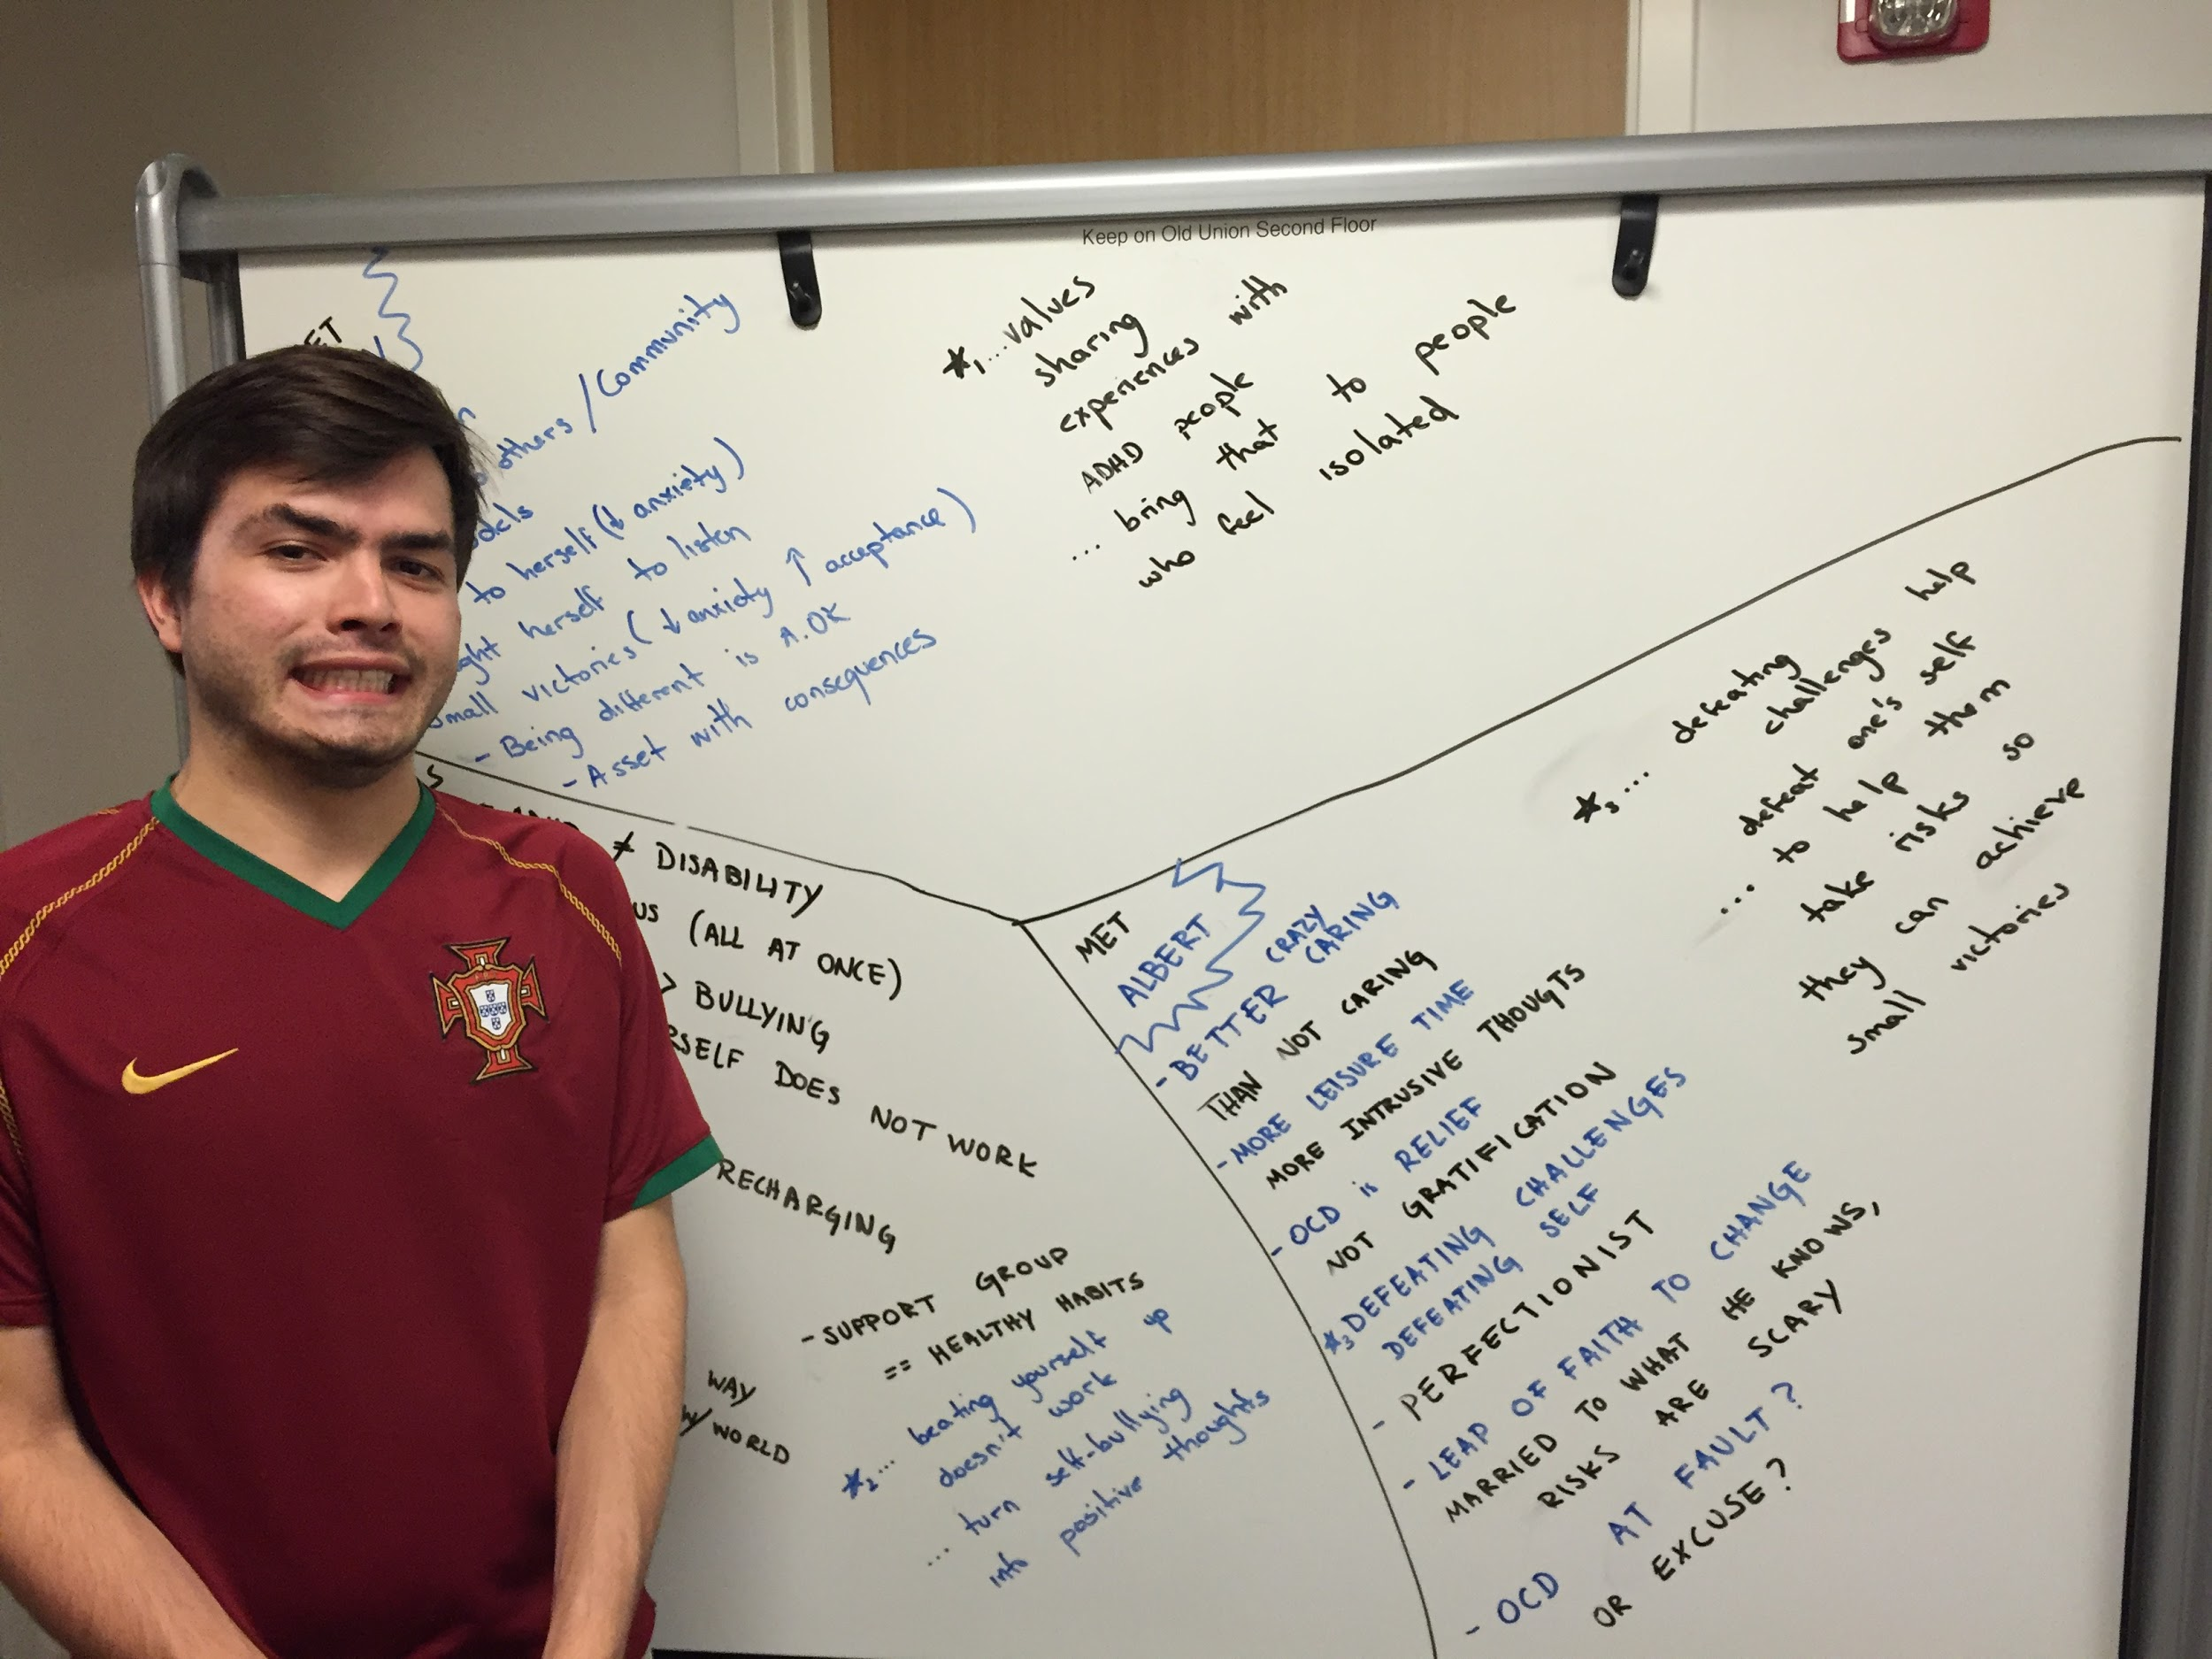 Keep on Old Union Second Floor
others / Community
to herself (↓ anxiety)
herself to listen
small victories (↓ anxiety ↑ acceptance)
- Being different is A.OK
- Asset with consequences
*1 ... values
sharing
experiences with
ADHD people
... bring that to people
who feel isolated
≠ DISABILITY
(ALL AT ONCE)
> BULLYING
DOES NOT WORK
RECHARGING
- SUPPORT GROUP
== HEALTHY HABITS
WAY
W/ WORLD
*2 ... beating yourself up
doesn't work
... turn self-bullying
into positive thoughts
MET
ALBERT
CRAZY
- BETTER CARING
THAN NOT CARING
- MORE LEISURE TIME
MORE INTRUSIVE THOUGTS
- OCD is RELIEF
NOT GRATIFICATION
*3 DEFEATING CHALLENGES
DEFEATING SELF
- PERFECTIONIST
- LEAP OF FAITH TO CHANGE
MARRIED TO WHAT HE KNOWS,
RISKS ARE SCARY
- OCD AT FAULT?
OR EXCUSE?
*3 ... defeating
challenges help
defeat one's self
... to help them
take risks so
they can achieve
small victories